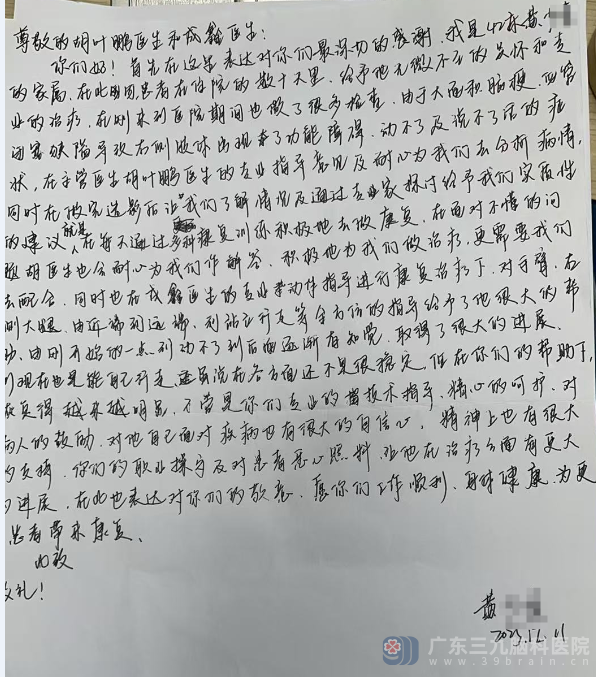 尊敬的胡叶鹏医生和成鑫医生:
你们好!首先在这里表达对你们最深切的感谢,我是42床黄
的家属,在此期间,患者在住院的数十天里,给予他无微不至的关怀和专
业的治疗,在刚来到医院期间也做了很多检查,由于大面积脑梗,血管
闭塞缺陷导致右侧肢体出现功能障碍,动不了及说不了话的症
状,在主管医生胡叶鹏医生的专业指导意见及耐心为我们去分析病情,
同时在做完造影后让我们了解情况及通过专业家探讨给予我们家属性
的建议就是,在每天通过多种康复训练积极地去做康复,在面对不懂的问
题胡医生也会耐心为我们作解答,积极地为我们做治疗,更需要我们
去配合,同时也在成鑫医生的专业带动作指导进行康复治疗下,对手臂,右
侧大腿,由近端到远端,到站立行走等全方位的指导给予了他很大的帮
助,由刚开始的一点到动不了到后面逐渐有知觉,取得了很大的进展,
到现在也是能自己行走,虽说在各方面还不是很稳定,但在你们的帮助下,
变得越来越明显,不管是你们专业的技术指导,精心的呵护,对
病人的鼓励,对他自己面对疾病也有很大的自信心,精神上也有很大
的支撑,你们的职业操守及对患者悉心照料,让他在治疗方面有更大
的进展,在此也表达对你们的敬意,愿你们工作顺利,身体健康,为更
患者带来康复。
此致
敬礼!
黄
2023.12.11
广东三九脑科医院
www.39brain.cn